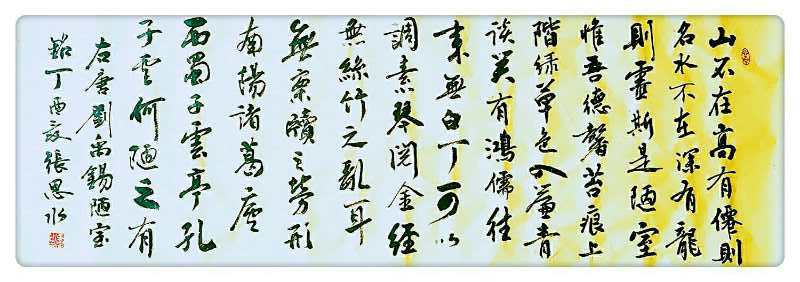 山不在高有僊則
名水不在深有龍
則靈斯是陋室
惟吾德馨苔痕上
階緑草色入簾青
談笑有鴻儒往
来無白丁可以
調素琴閱金經
無絲竹之亂耳
無案牘之勞形
南陽諸葛廬
西蜀子雲亭孔
子云何陋之有
右唐劉禹錫陋室
銘丁酉張